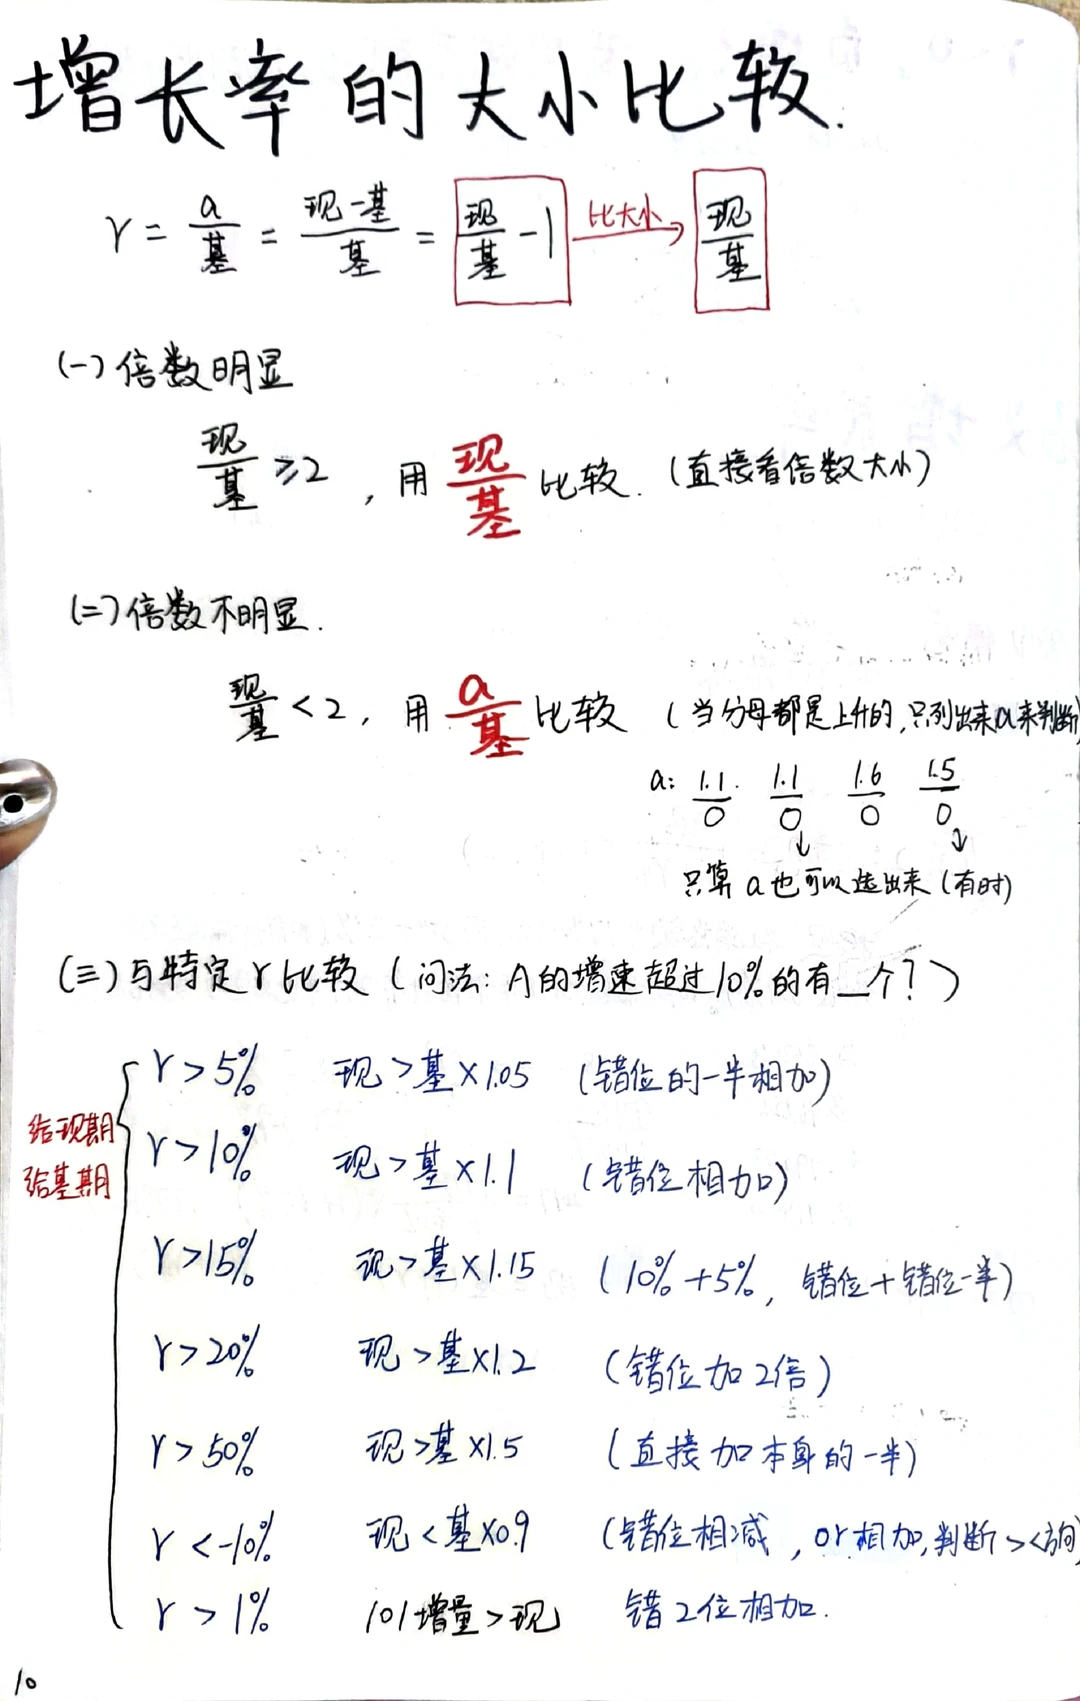 增长率的大小比较.
r = a/基 = 现-基/基 = 现/基 -1 比大小→ 现/基
(一) 倍数明显
现/基 ≥2 , 用 现/基 比较. (直接看倍数大小)
(二) 倍数不明显.
现/基 < 2 , 用 a/基 比较 (当分母都是上升的,只列出来a来判断)
a: 1.1/0 1.1/0 1.6/0 1.5/0
↓ ↓
只算a也可以选出来(有时)
(三) 与特定r比较 (问法: A的增速超过10%的有__个?)
给现期
给基期
r > 5% 现 > 基 ×1.05 (错位的一半相加)
r > 10% 现 > 基 ×1.1 (错位相加)
r >15% 现 > 基 ×1.15 (10% +5%, 错位+错位一半)
r > 20% 现 >基×1.2 (错位加2倍)
r > 50% 现 >基×1.5 (直接加本身的一半)
r < -10% 现 < 基×0.9 (错位相减, or相加,判断 > <方向)
r > 1% 101增量>现 错2位相加.
10